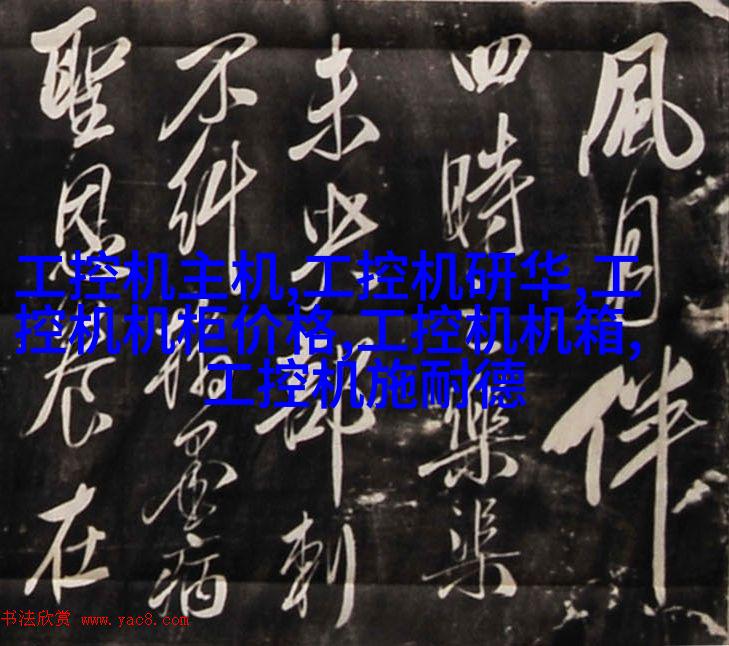 風月伴
四時樂渠
未部刺
不糾翰墨病
聖恩養在
工控机主机,工控机研华,工
控机机柜价格,工控机机箱,
工控机施耐德
书法欣赏 www.yac8.com